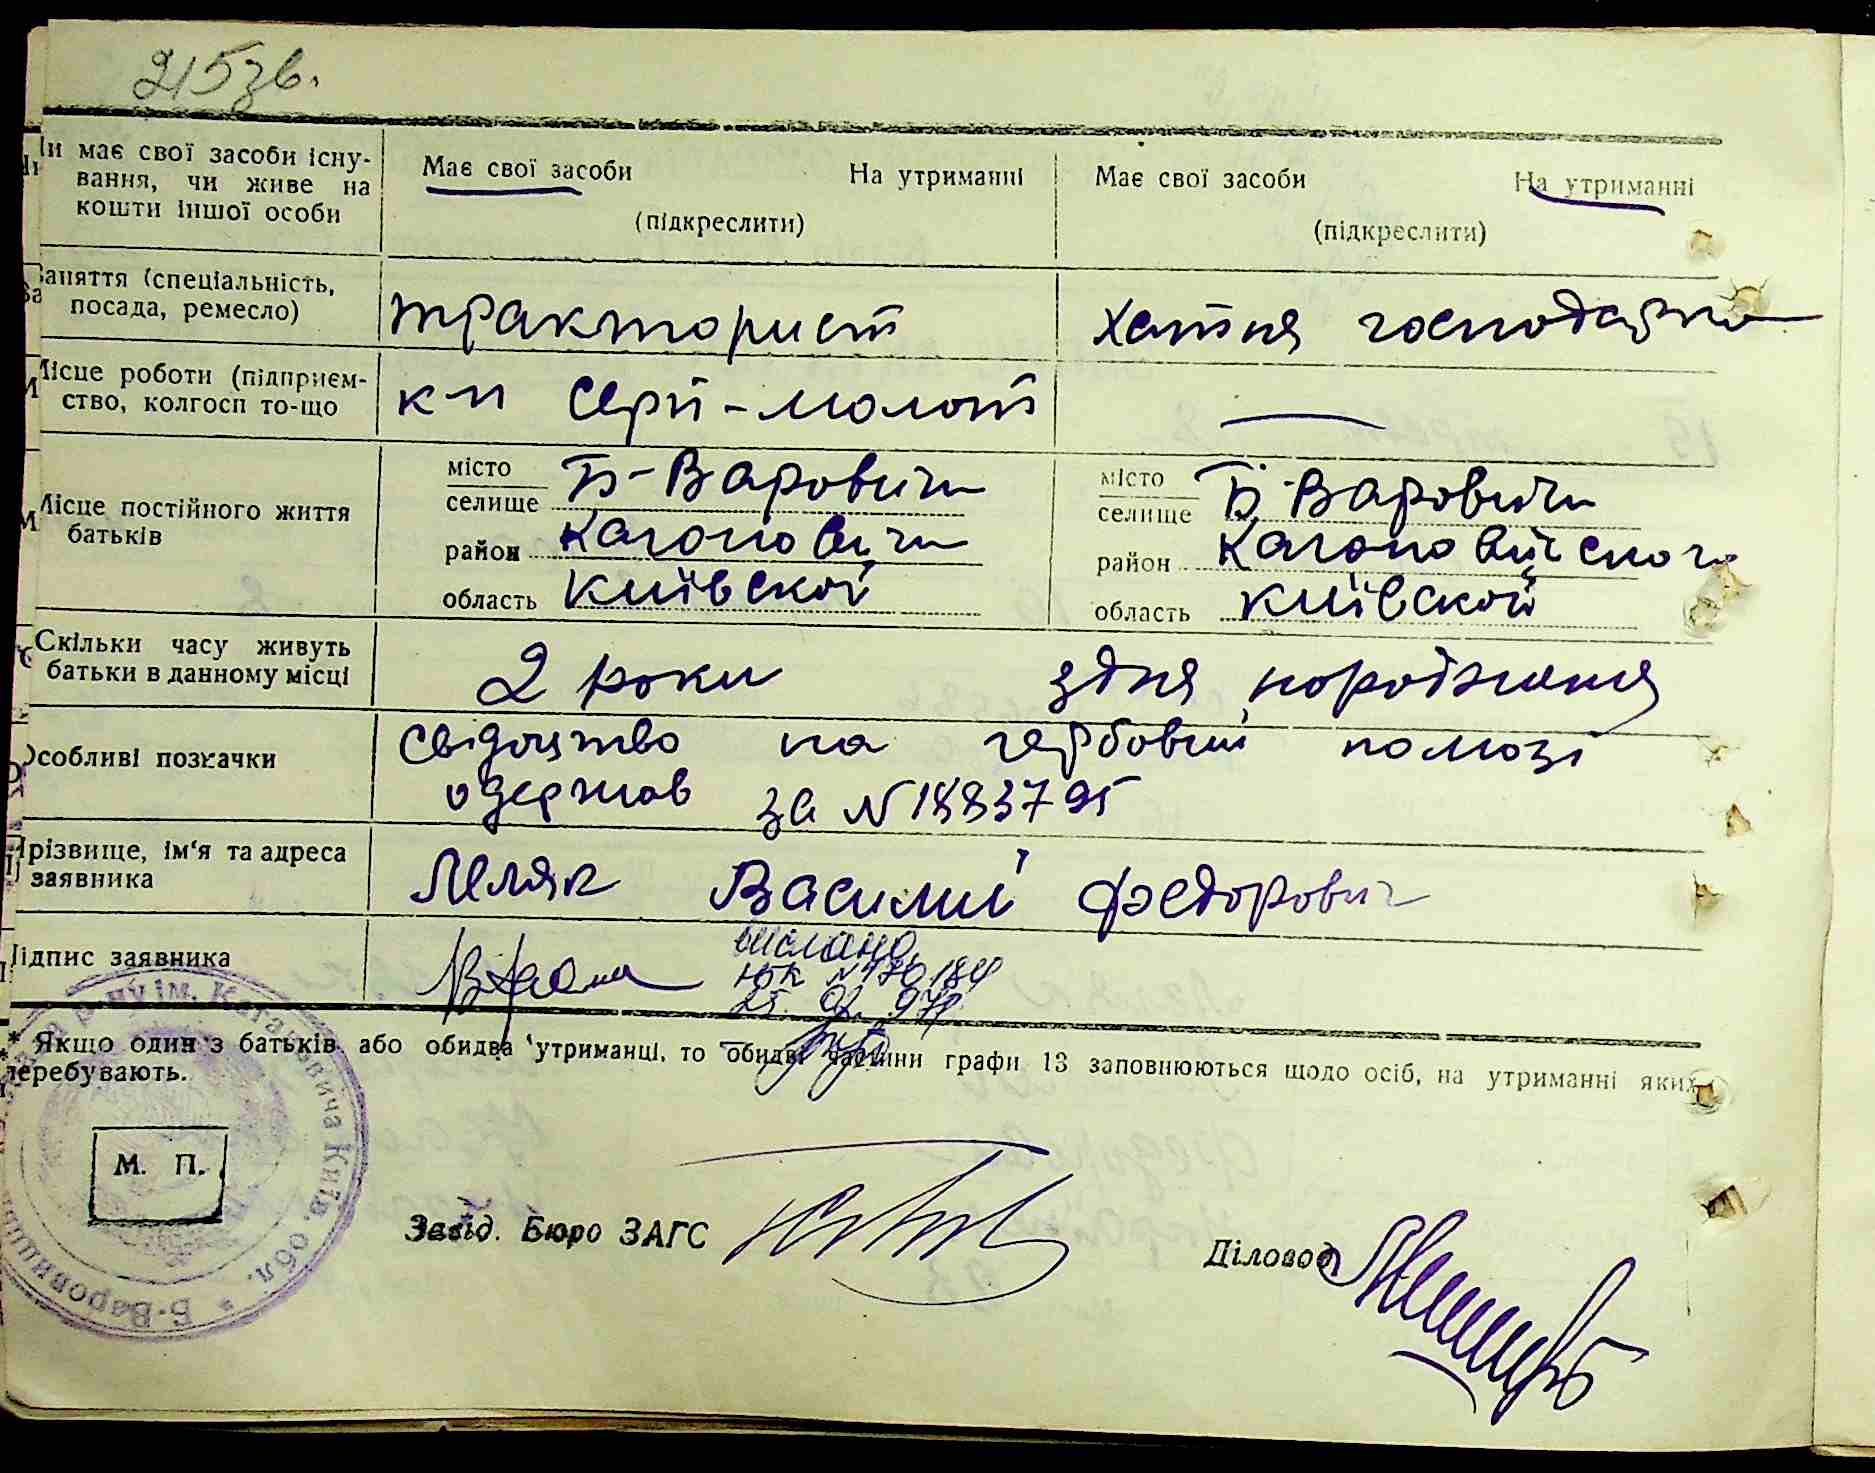 215зв.
Чи має свої засоби існу-
вання, чи живе на
кошти іншої особи
Має свої засоби На утриманні
(підкреслити)
Має свої засоби На утриманні
(підкреслити)
Заняття (спеціальність,
посада, ремесло)
тракторист
хатня господарка
Місце роботи (підприєм-
ство, колгосп то-що
к-п Серп-молот
—
Місце постійного життя
батьків
місто
селище Б-Варовичи
район Каганович
область Київской
місто
селище Б-Варовичи
район Кагановичского
область Київской
Скільки часу живуть
батьки в данному місці
2 роки
здня породження
Особливі позначки
свідоцтво на гербовий помозі
одержав за N 1883795
Прізвище, ім'я та адреса
заявника
Леляк Василий Федорович
Підпис заявника
выслано
ЮК N 470184
* Якщо один з батьків або обидва утриманці, то обидві частини графи 13 заповнюються щодо осіб, на утриманні яких
перебувають.
р-ну ім. Кагановича Київ. обл. * Б-Варовиць
М. П.
Завід. Бюро ЗАГС
Діловод